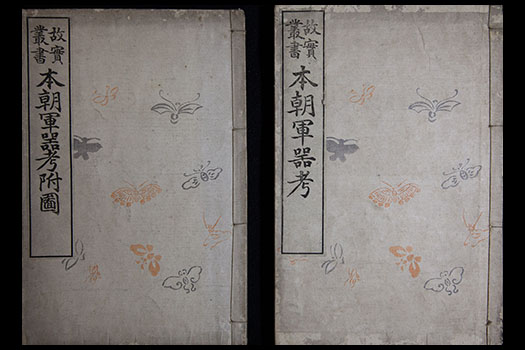 故實
叢書
本朝軍器考
故實
叢書
本朝軍器考附圖